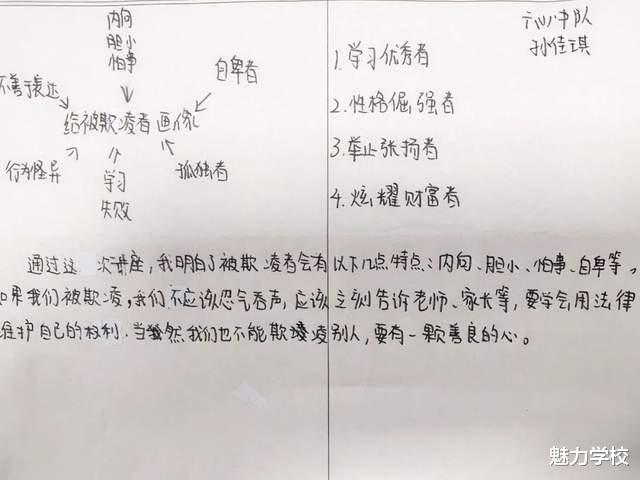 内向
胆小
怕事
自卑者
不善于表达
给被欺凌者画像
行为怪异
学习
失败
孤独者
六(八)中队
孙佳琪
1.学习优秀者
2.性格倔强者
3.举止张扬者
4.炫耀财富者
通过这次讲座,我明白了被欺凌者会有以下几点特点:内向、胆小、怕事、自卑等,
如果我们被欺凌,我们不应该忍气吞声,应该立刻告诉老师、家长等,要学会用法律
维护自己的权利.当然我们也不能欺凌别人,要有一颗善良的心。
魅力学校